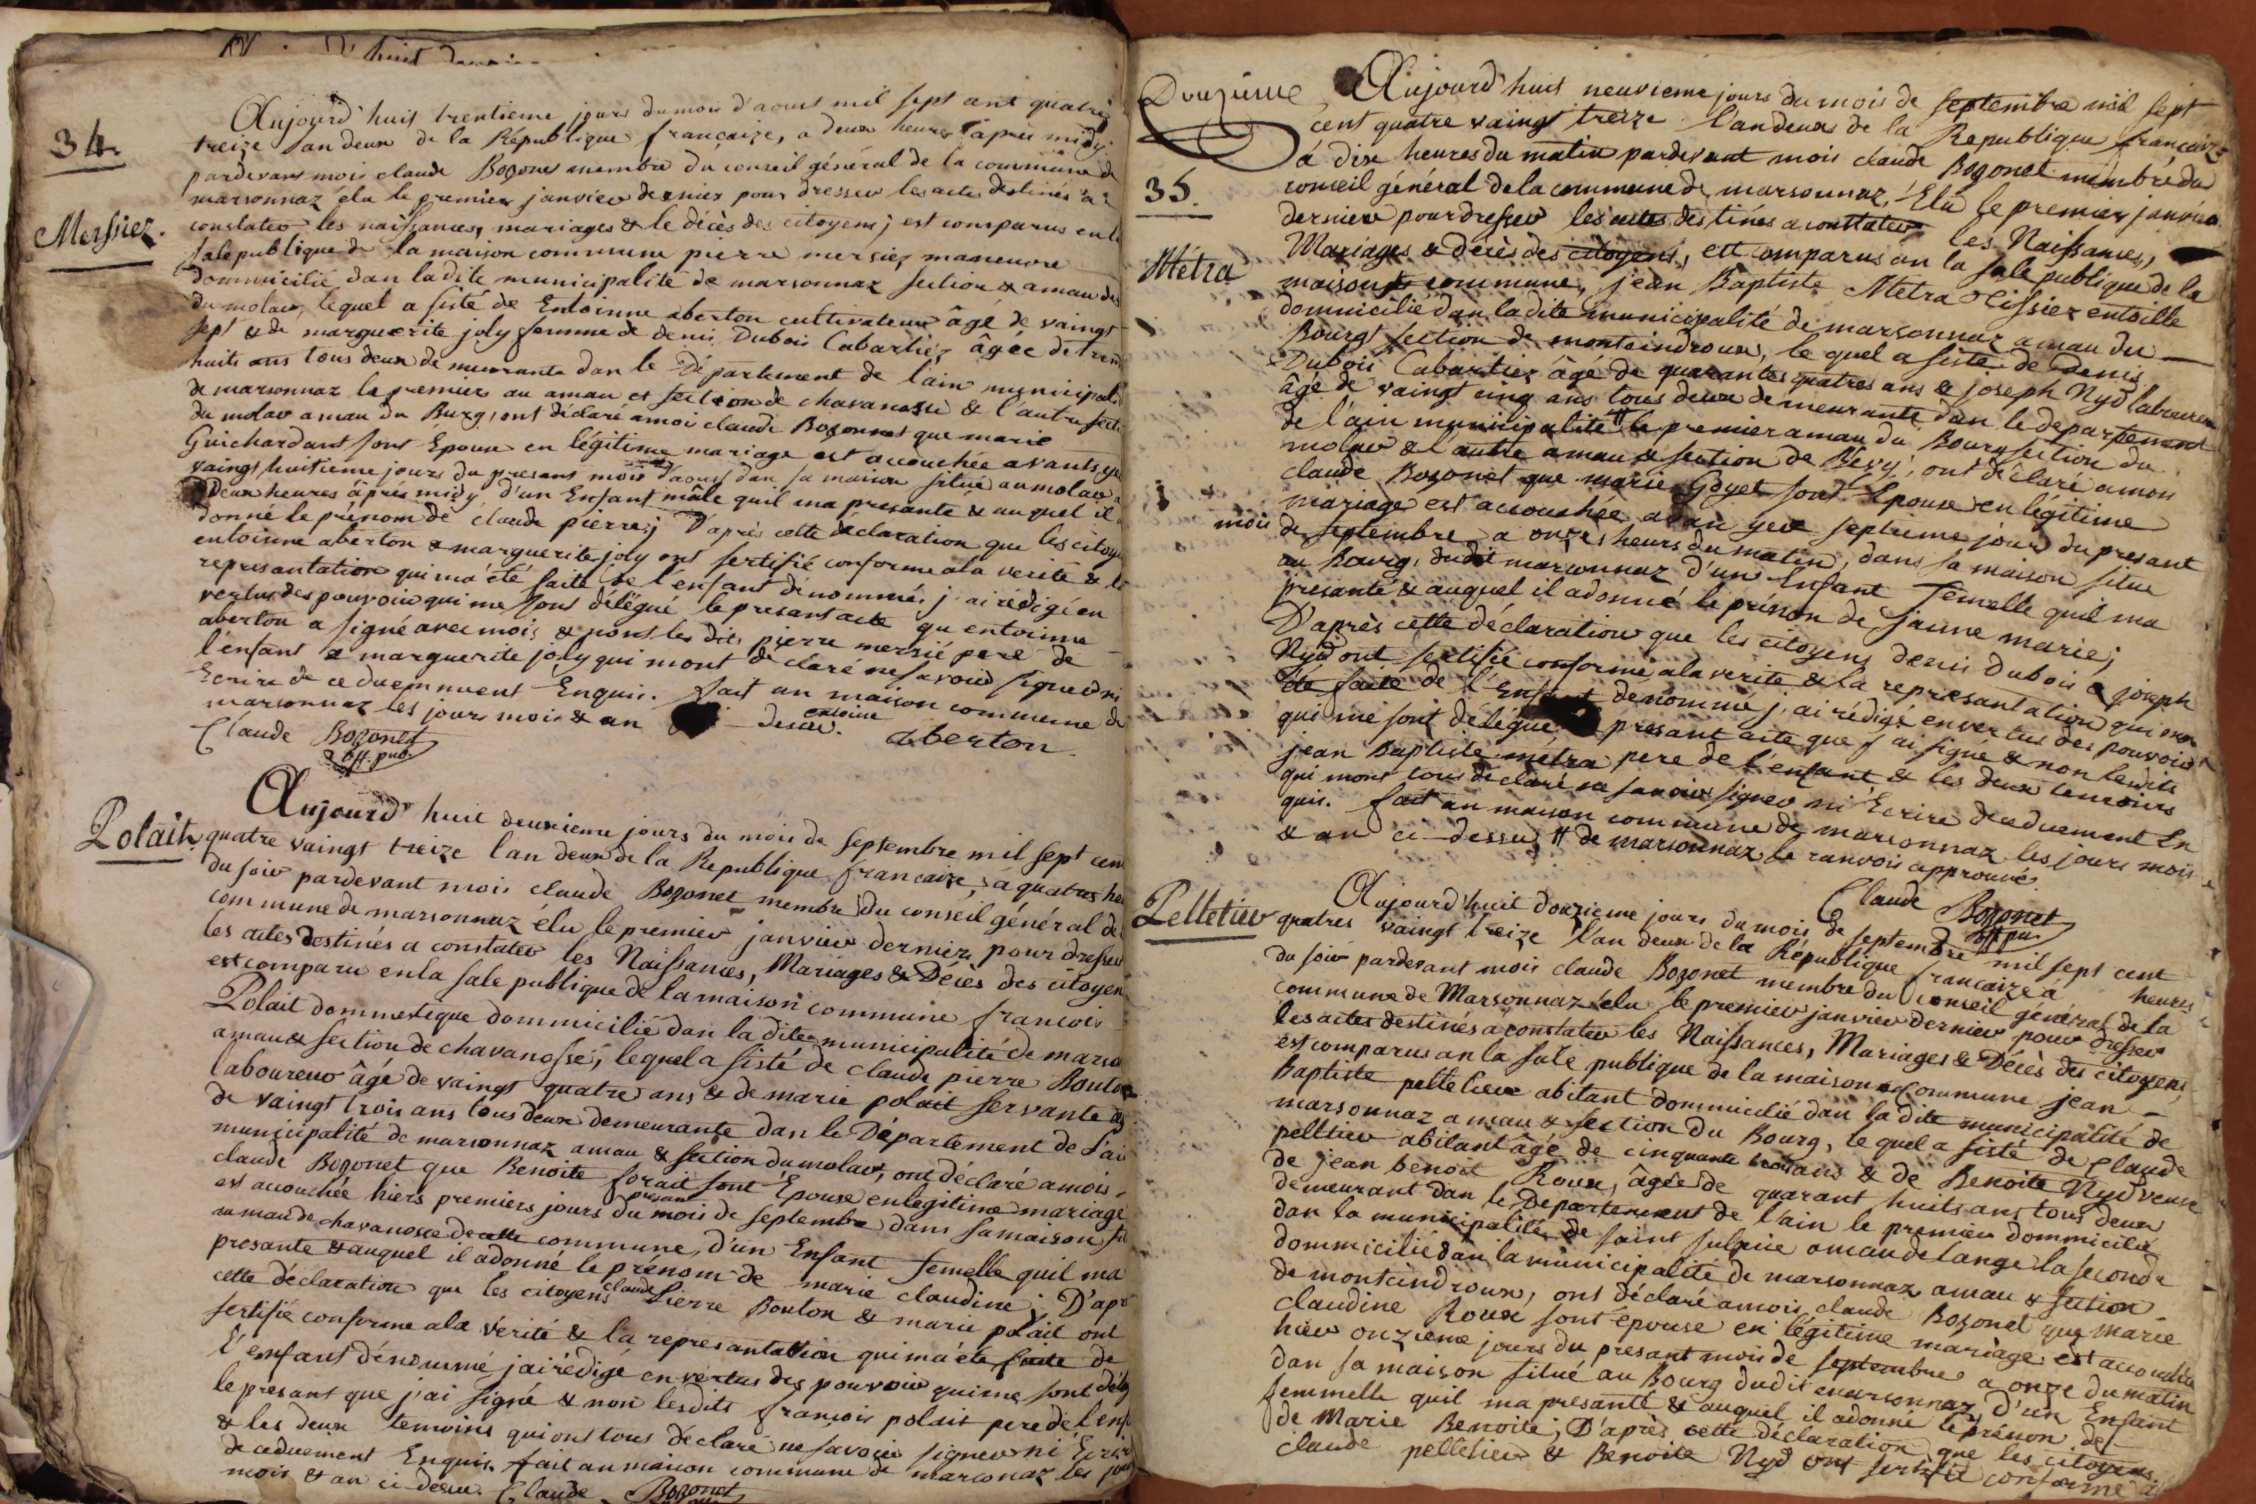 huit
34.
Mersiez.
Aujourd'huit trentieme jours du mois d'aoust mil sept cent quatre
treize l'an deux de la République françaize, a deux heures apres midy
pardevant mois claude Bozonet membre du conseil général de la commune de
marsonnaz élu le premier janvier dernier pour dresser les actes destinés a
constater les naissances, mariages & le décès des citoyens; est comparus en la
sale publique de la maison commune pierre mersiez maneuvre
dommicilié dan la dite municipalité de marsonnaz section & amau du
du molar, lequel a sisté de Entoinne aberton cultivateur âgé de vaingt
sept & de marguerite joly femme de denis Dubois Cabartiez âgée de tren
huits ans tous deux demeurante dan le Département de l'ain municipali
de marsonnaz le premier au amau et section de chavanosse & l'autre secti
du molar amau du Burg, ont déclaré amoi claude Bozonnet que marie
Guichardant sont Epoux en légitime mariage est accouchée avants yer
vaingt huitieme jours du presant mois d'aoust dan sa maison situé au molar a
deux heures âprés midy d'un Enfant mâle quil ma presanté & auquel il a
donné le prénom de claude pierre; D'après cette déclaration que les citoye
entoinne aberton & marguerite joly ont sertifié conforme ala verité & la
represantation qui ma été faite de l'enfant dénommé, j'ai rédigé en
vertus des pouvoir qui me sont délégué le presant acte qu entoinne
aberton a signé avec mois & non les dits pierre mersié pere de
l'enfant & marguerite joly qui mont declaré ne savoir signer ni
Ecrire de ce duemment Enquis. fait an maison commune de
marsonnaz les jours mois & an desu. entoine aberton
Claude Bozonet
off. pub.
Polait
Aujourd'huit deuxieme jours du mois de septembre mil sept cen
quatre vaingt treize l'an deux de la Republique francaize, a quatres heu
du soir pardevant mois claude Bozonet membre du conseil général de
commune de marsonnaz élu le premier janvier dernier pour dresser
les actes destinés a constater les Naissances, Mariages & Décès des citoyen
est comparu en la sale publique de la maison commune francois
Polait dommestique dommicilié dan la dite municipalité de marso
amau & section de chavanosse, lequel a sisté de claude pierre Bouton
laboureur âgé de vaingt quatre ans & de marie polait servante ag
de vaingt trois ans tous deux demeurante dan le Département de l'ai
municipalité de marsonnaz amau & section du molar, ont déclaré amois
claude Bozonet que Benoite forait sont Epouse en légitime mariage
est accouchée hiers premiers jours du presant mois de septembre dans sa maison si
amau de chavanosse de cette commune, d'un Enfant femelle quil ma
presante & auquel il adonné le prenom de marie claudine; D'apr
cette déclaration que les citoyens claude Pierre Bouton & marie polait ont
sertifié conforme ala verité & la represantation qui ma été faite de
l'enfant dénommé j'ai rédigé en vertus des pouvoir qui me sont délé
le presant que j'ai signé & non lesdits francois polait pere de l'enf
& les deux temoins qui ont tous déclaré ne savoir signer ni Ecrir
de ceduement Enquis. fait an maison commune de marsonaz les jou
mois & an ci desu. Claude Bozonet
Douzieme
35.
Métra
Aujourd'huit neuvieme jours du mois de septembre mil sept
cent quatre vaingt treize l'an deux de la Republique françaize
á dix heures du matin pardevant mois claude Bozonet membre du
conseil général de la commune de marsonnaz, Elu le premier janvier
derniere pour dresser les actes destinés a constater les Naissances,
Mariages & décès des citoyens, est comparus an la sale publique de la
maison commune, jean Baptiste Metra tissier entoille
domnicilié dan la dite municipalité de marsonnaz amau du
Bourgt section de monteindroux, le quel a sisté de Denis
Dubois Cabartiez âgé de quarantes quatres ans & joseph Nyd laboureur
âgé de vaingt cinq ans tous deux demeurante dan le departement
de l'ain municipalité # le premier amau du Bourg section du
molar & l'autre amau & section de Bévy; ont déclaré amoi
claude Bozonet que marie Goyet sont Epouse en légitime
mariage est accouchée avan yer septieme jour du presant
mois de septembre a onzes heurs du matin, dans sa maison situe
au Bourg, dudit marsonnaz d'un Enfant femelle quil ma
presanté & auquel il adonné le prénom de jaune marie;
D'après cette déclaration que les citoyens denis dubois & joseph
Nyd ont sertifié conforme ala verité & la represantation qui ma
été faite de l'Enfant dénommé j'ai rédigé en vertus des pouvoir
qui me sont délégué presant acte que j'ai signé & non lesdits
jean Baptiste métra pere de l'enfant & les deux temoins
qui mont tous déclaré ne savoir signer ni Ecrire de ceduement En
quis. fait an maison commune de marsonnaz les jours mois
& an ci-dessu # de marsonnaz le ranvois approuvé
Claude Bozonet
off pu.
Pelletier
Aujourd'huit douzieme jours du mois de septembre mil sept cent
quatres vaingt treize l'an deux de la République francaize a heures
du soir pardevant mois claude Bozonet membre du conseil général de la
commune de Marsonnaz élu le premier janvier dernier pour dresser
les actes destinés a constater les Naissances, Mariages & Décès des citoyens
est comparus an la sale publique de la maison commune jean
Baptiste pelletier abitant dommicilié dan la dite municipalité de
marsonnaz amau & section du Bourg, le quel a sisté de claude
pelltier abitant âgé de cinquante trois ans & de Benoite Nyd veuve
de jean benoit Roux, âgée de quarant huits ans tous deux
demeurant dan le Departement de l'ain le premier dommicilié
dan la municipalité de saint sulpice amau de lange la seconde
dommicilié dan la municipalité de marsonnaz amau & section
de monteindroux, ont déclaré amois claude Bozonet que marie
claudine Roux sont épouse en légitime mariage est accouchée
hier onzieme jours du presant mois de septembre a onze du matin
dan sa maison situé au Bourg dudit marsonnaz d'un Enfant
femmelle quil ma presanté & auquel il adonné le prénon de
de Marie Benoite; D'après cette déclaration que les citoyens
claude pelletier & Benoite Nyd ont sertifié conforme